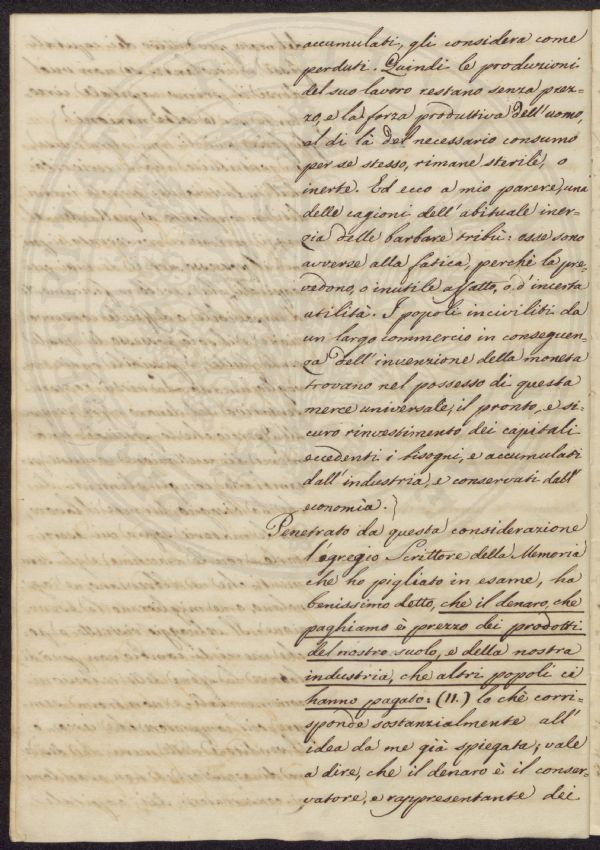 accumulati, gli considera come
perduti. Quindi le produzioni
del suo lavoro restano senza prez-
zo, e la forza produttiva dell'uomo,
al di là del necessario consumo
per se stesso, rimane sterile, o
inerte. Ed ecco a mio parere, una
delle cagioni dell'abituale iner-
zia delle barbare tribù: esse sono
avverse alla fatica, perchè la pre-
vedono, o inutile affatto, o d'incerta
utilità. I popoli inciviliti da
un largo commercio in conseguen-
za dell'invenzione della moneta
trovano nel possesso di questa
merce universale, il pronto, e si-
curo rinvestimento dei capitali
eccedenti i bisogni, e accumulati
dall'industria, e conservati dall'
economia.}
Penetrato da questa considerazione
l'egregio Scrittore della Memoria
che ho pigliato in esame, ha
benissimo detto, che il denaro, che
paghiamo è prezzo dei prodotti
del nostro suolo, e della nostra
industria, che altri popoli ci
hanno pagato: (11.) lo chè corri-
sponde sostanzialmente all'
idea da me già spiegata; vale
a dire, che il denaro è il conser-
vatore, e rappresentante dei